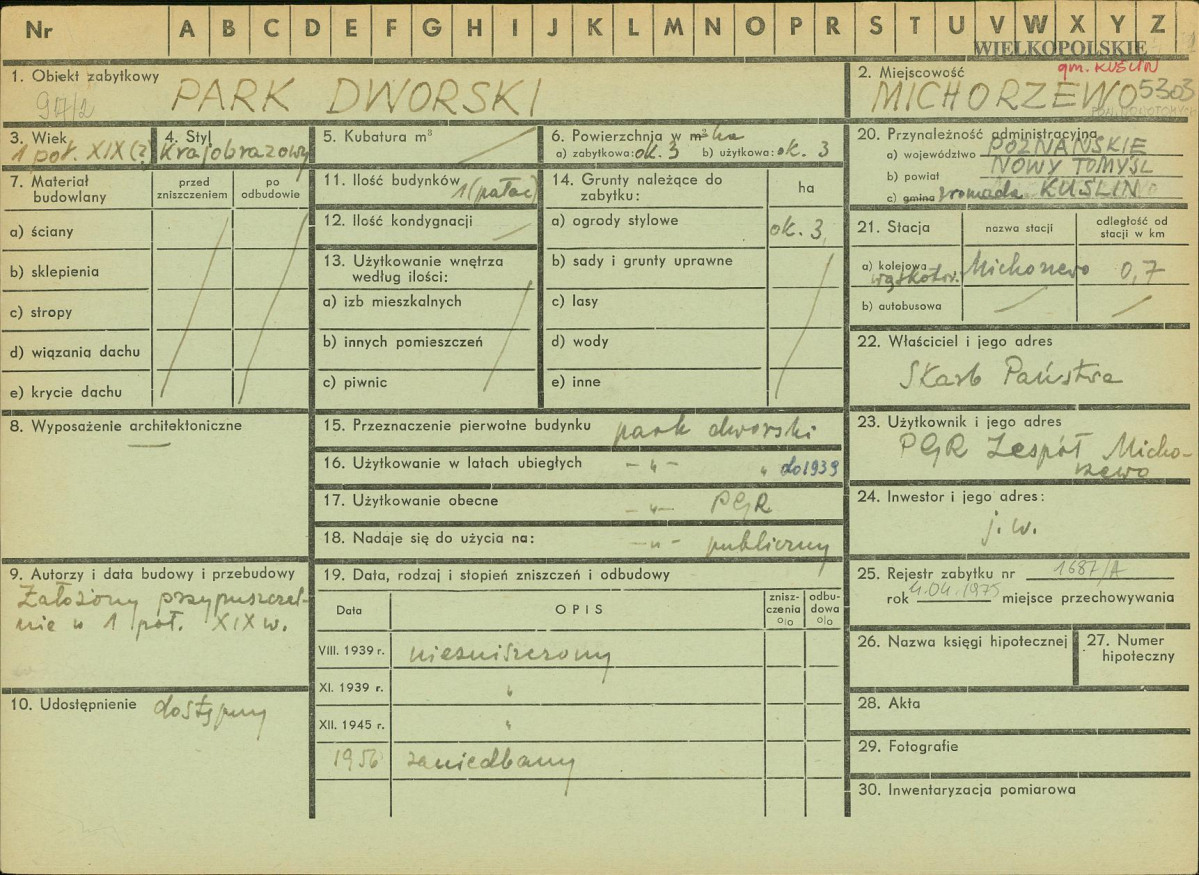 Nr A B C D E F G H I J K L M N O P R S T U V W X Y Z
WIELKOPOLSKIE
1. Obiekt zabytkowy
PARK DWORSKI
2. Miejscowość
gm. KUŚLIN
MICHORZEWO 5303
3. Wiek
1 poł. XIX (?)
4. Styl
Krajobrazowy
5. Kubatura m³
6. Powierzchnia w m² ha
a) zabytkowa: ok. 3 b) użytkowa: ok. 3
20. Przynależność administracyjna
a) województwo POZNAŃSKIE
b) powiat NOWY TOMYŚL
c) gmina gromada KUŚLIN
7. Materiał budowlany
przed zniszczeniem
po odbudowie
a) ściany
b) sklepienia
c) stropy
d) wiązania dachu
e) krycie dachu
11. Ilość budynków 1 (pałac)
12. Ilość kondygnacji
13. Użytkowanie wnętrza
według ilości:
a) izb mieszkalnych
b) innych pomieszczeń
c) piwnic
14. Grunty należące do
zabytku:
ha
a) ogrody stylowe ok. 3
b) sady i grunty uprawne
c) lasy
d) wody
e) inne
21. Stacja
nazwa stacji
odległość od
stacji w km
a) kolejowa
wąskotor. Michorzewo 0,7
b) autobusowa
22. Właściciel i jego adres
Skarb Państwa
8. Wyposażenie architektoniczne
15. Przeznaczenie pierwotne budynku park dworski
16. Użytkowanie w latach ubiegłych - „ - „ do 1939
17. Użytkowanie obecne - „ - PGR
18. Nadaje się do użycia na: - „ - publiczny
23. Użytkownik i jego adres
PGR Zespół Micho-
rzewo
24. Inwestor i jego adres:
j. w.
9. Autorzy i data budowy i przebudowy
Założony przypuszczal-
nie w 1 poł. XIX w.
10. Udostępnienie dostępny
19. Data, rodzaj i stopień zniszczeń i odbudowy
Data
OPIS
znisz-
czenia
%
odbu-
dowa
%
VIII. 1939 r. niezniszczony
XI. 1939 r. „
XII. 1945 r. „
1956 zaniedbany
25. Rejestr zabytku nr 1687/A
rok 4.04.1975 miejsce przechowywania
26. Nazwa księgi hipotecznej
27. Numer
hipoteczny
28. Akta
29. Fotografie
30. Inwentaryzacja pomiarowa